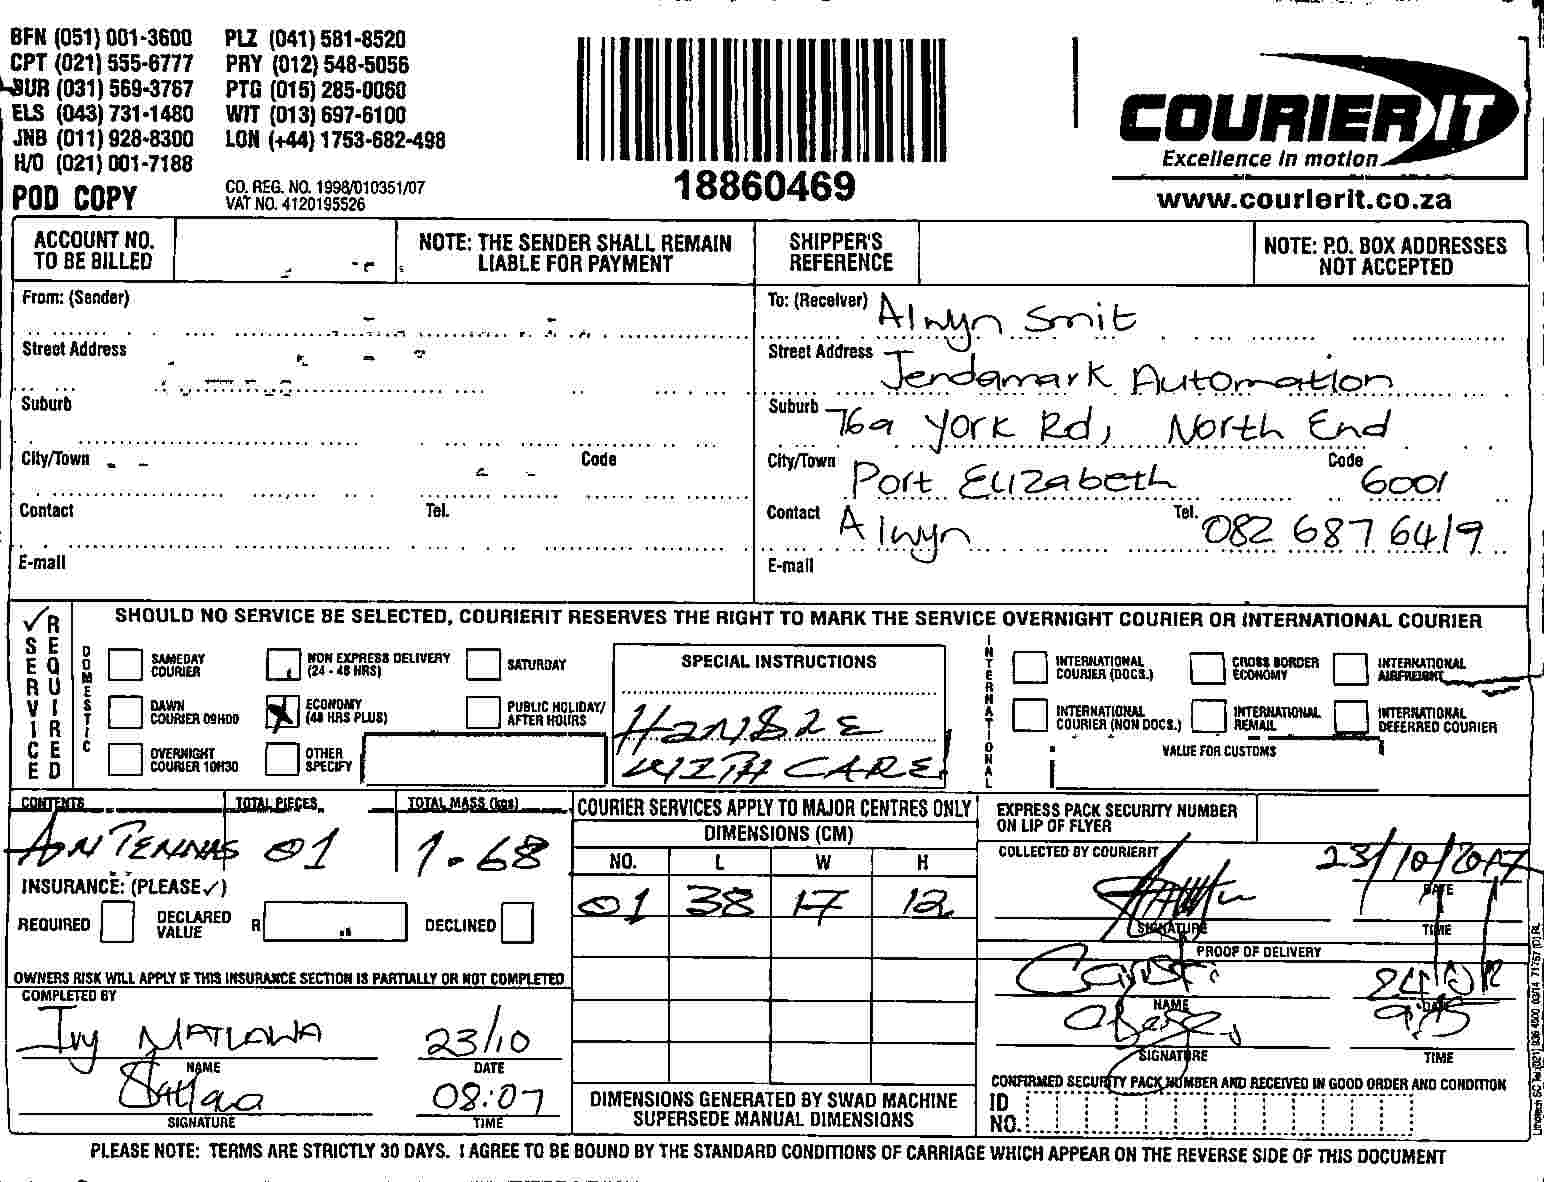 BFN (051) 001-3600 PLZ (041) 581-8520
CPT (021) 555-6777 PRY (012) 548-5056
DUR (031) 569-3767 PTG (015) 285-0060
ELS (043) 731-1480 WIT (013) 697-6100
JNB (011) 928-8300 LON (+44) 1753-682-498
H/O (021) 001-7188
POD COPY
CO. REG. NO. 1998/010351/07
VAT NO. 4120195526
18860469
COURIER IT
Excellence in motion
www.courierit.co.za
ACCOUNT NO. TO BE BILLED
NOTE: THE SENDER SHALL REMAIN LIABLE FOR PAYMENT
SHIPPER'S REFERENCE
NOTE: P.O. BOX ADDRESSES NOT ACCEPTED
From: (Sender)
Street Address
Suburb
City/Town Code
Contact Tel.
E-mail
To: (Receiver) Alwyn Smit
Street Address Jendamark Automation
Suburb 76a York Rd, North End
City/Town Port Elizabeth Code 6001
Contact Alwyn Tel. 082 687 6419
E-mail
SERVICE REQUIRED
SHOULD NO SERVICE BE SELECTED, COURIERIT RESERVES THE RIGHT TO MARK THE SERVICE OVERNIGHT COURIER OR INTERNATIONAL COURIER
DOMESTIC
SAMEDAY COURIER
NON EXPRESS DELIVERY (24 - 48 HRS)
SATURDAY
DAWN COURIER 09H00
ECONOMY (48 HRS PLUS)
PUBLIC HOLIDAY/ AFTER HOURS
OVERNIGHT COURIER 10H30
OTHER SPECIFY
SPECIAL INSTRUCTIONS
HANDLE
WITH CARE
INTERNATIONAL
INTERNATIONAL COURIER (DOCS.)
CROSS BORDER ECONOMY
INTERNATIONAL AIRFREIGHT
INTERNATIONAL COURIER (NON DOCS.)
INTERNATIONAL REMAIL
INTERNATIONAL DEFERRED COURIER
VALUE FOR CUSTOMS
CONTENTS TOTAL PIECES TOTAL MASS (kgs)
ANTENNAS 01 1.68
INSURANCE: (PLEASE ✓)
REQUIRED DECLARED VALUE R DECLINED
OWNERS RISK WILL APPLY IF THIS INSURANCE SECTION IS PARTIALLY OR NOT COMPLETED
COMPLETED BY
Ivy MATLAWA 23/10
NAME DATE
08:07
SIGNATURE TIME
COURIER SERVICES APPLY TO MAJOR CENTRES ONLY
DIMENSIONS (CM)
NO. L W H
01 38 17 12
DIMENSIONS GENERATED BY SWAD MACHINE
SUPERSEDE MANUAL DIMENSIONS
EXPRESS PACK SECURITY NUMBER
ON LIP OF FLYER
COLLECTED BY COURIERIT
23/10/2017
DATE
SIGNATURE TIME
PROOF OF DELIVERY
NAME DATE
SIGNATURE TIME
CONFIRMED SECURITY PACK NUMBER AND RECEIVED IN GOOD ORDER AND CONDITION
ID NO.
PLEASE NOTE: TERMS ARE STRICTLY 30 DAYS. I AGREE TO BE BOUND BY THE STANDARD CONDITIONS OF CARRIAGE WHICH APPEAR ON THE REVERSE SIDE OF THIS DOCUMENT